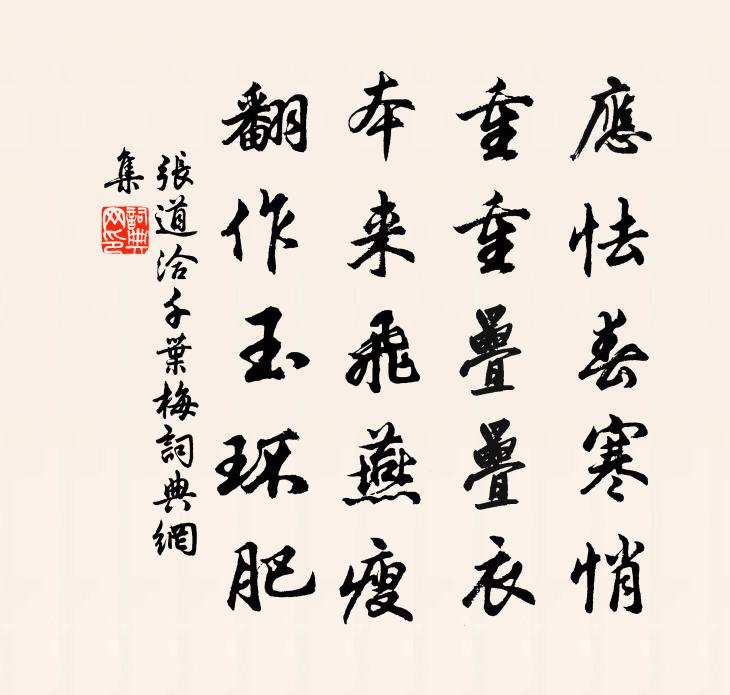 應怯春寒悄
重重疊疊衣
本来飛燕瘦
翻作玉环肥
張道洽千葉梅詞典網
集
詞典
网印